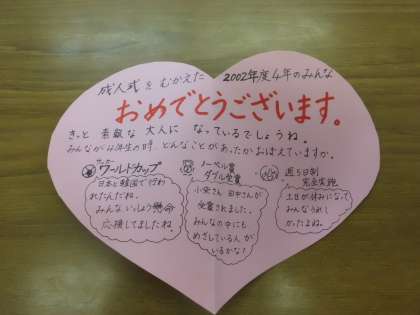 成人式をむかえた 2002年度4年のみんな
おめでとうございます。
きっと 素敵な 大人に なっているでしょうね。
みんなが4年生の時、どんなことがあったかおぼえていますか。
サッカー
ワールドカップ
日本と韓国で行わ
れたんだね。
みんないっしょう懸命
応援してましたね。
ノーベル賞
ダブル受賞
小柴さん 田中さんが
受賞されました。
みんなの中にも
めざしている人が
いるかな!
週5日制
完全実施
土日が休みになって
みんなうれし
かったよね。